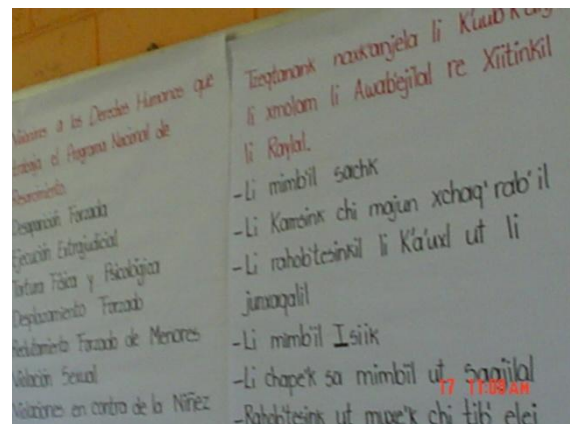 Violaciones a los Derechos Humanos que
trabaja el Programa Nacional de
Resarcimiento
Desaparición Forzada
Ejecución Extrajudicial
Tortura Física y Psicológica
Desplazamiento Forzado
Reclutamiento Forzado de Menores
Violación Sexual
Violaciones en contra de la Niñez
Tzeqtanank naxk'anjela li
li xmolam li Awab'ejilal re Xiitinkil
li Raylal.
-Li mimb'il sachk
-Li Kamsink chi majun xchaq'rab'il
-Li rahob'tesinkil li K'a'uxl ut li
junxaqalil
-Li mimb'il Isiik
-Li chape'k sa mimb'il ut
-Rahob'tesink ut muxe'k chi tib'elej
17 11:09AM